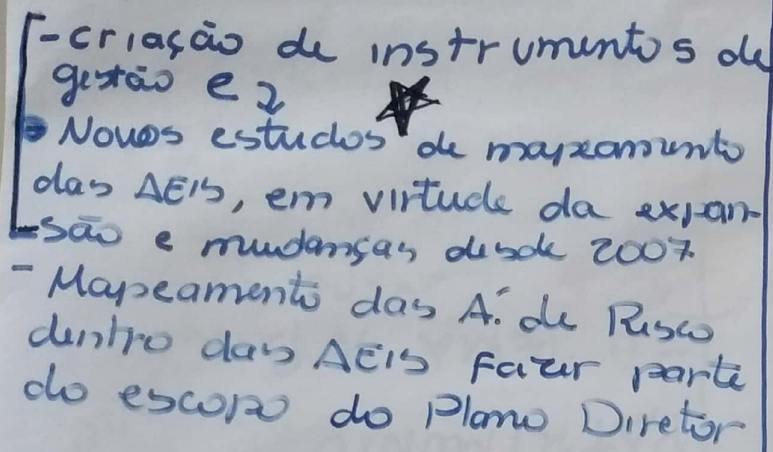 - criação de instrumentos de
gestão e 2
• Novos estudos de mapeamento
das AEIS, em virtude da expan-
são e mudanças desde 2007.
- Mapeamento das A. de Risco
dentro das AEIS fazer parte
do escopo do Plano Diretor